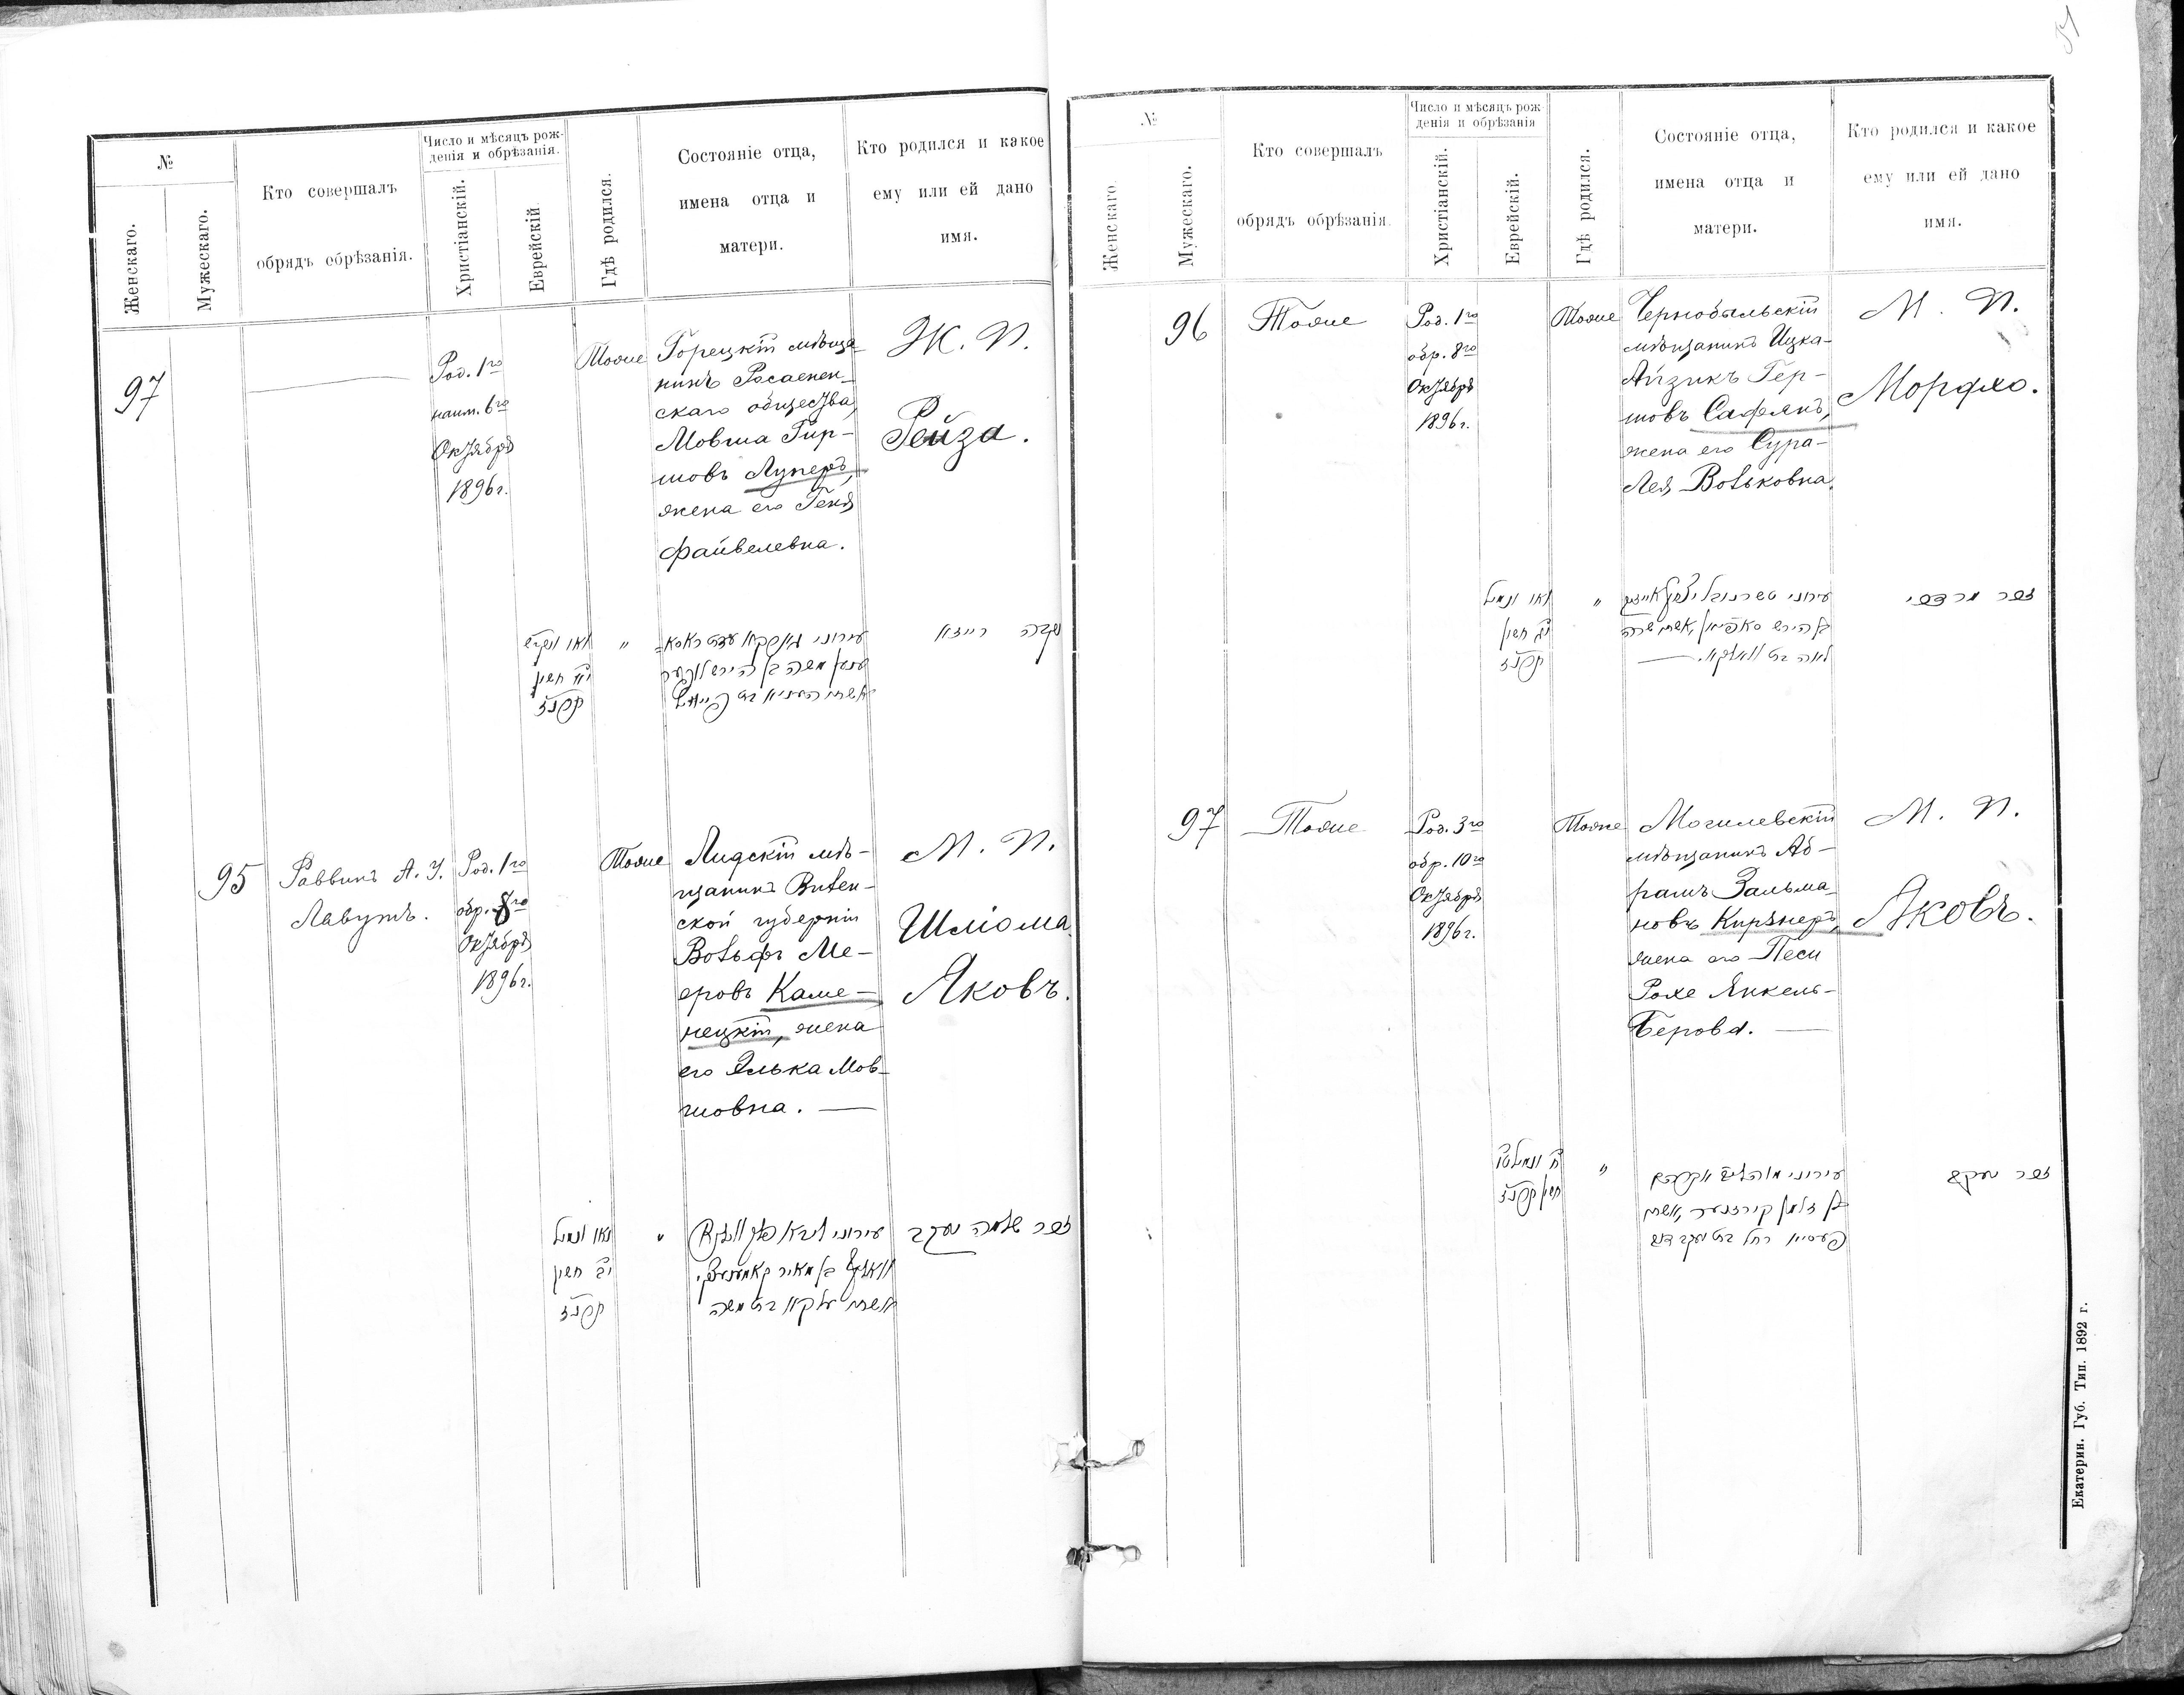 №
Женскаго.
Мужескаго.
Кто совершалъ
обрядъ обрѣзанія.
Число и мѣсяцъ рож-
денія и обрѣзанія.
Христіанскій.
Еврейскій
Гдѣ родился.
Состояніе отца,
имена отца и
матери.
Кто родился и какое
ему или ей дано
имя.
97
Род. 1го
наим. 6го
Октября
1896 г.
Тоже
Горецкій мѣща-
нинъ Росаенен-
скаго общества,
Мовша Гир-
шовъ Лунеръ,
жена его Геня
Файвелевна.
Ж. П.
Рейза.
נקבה רייזא
95
Раввинъ А. У.
Лавутъ.
Род. 1го
обр. 8го
Октября
1896 г.
Тоже
Лидскій мѣ-
щанинъ Вилен-
ской губерніи
Вольфъ Ме-
еровъ Каме-
нецкій, жена
его Элька Мов-
шовна. —
М. П.
Шліома
Яковъ.
יב חשון
זכר שלמה יעקב
אשתו עלקא בת משה
51
№
Женскаго.
Мужескаго.
Кто совершалъ
обрядъ обрѣзанія.
Число и мѣсяцъ рож-
денія и обрѣзанія
Христіанскій.
Еврейскій.
Гдѣ родился.
Состояніе отца,
имена отца и
матери.
Кто родился и какое
ему или ей дано
имя.
96
Тоже
Род. 1го
обр. 8го
Октября
1896 г.
Тоже
Чернобыльскій
мѣщанинъ Ицка-
Айзикъ Гер-
шовъ Сафьянъ,
жена его Сура-
Лея Вольковна.
М. П.
Мордхо.
זכר מרדכי
97
Тоже
Род. 3го
обр. 10го
Октября
1896 г.
Тоже
Могилевскій
мѣщанинъ Аб-
рамъ Зальма-
новъ Кирзнеръ,
жена его Песи
Рохе Янкель-
Берова. —
М. П.
Яковъ.
זכר יעקב
בן זלמן קירזנער, אשתו
Екатерин. Губ. Тип. 1892 г.